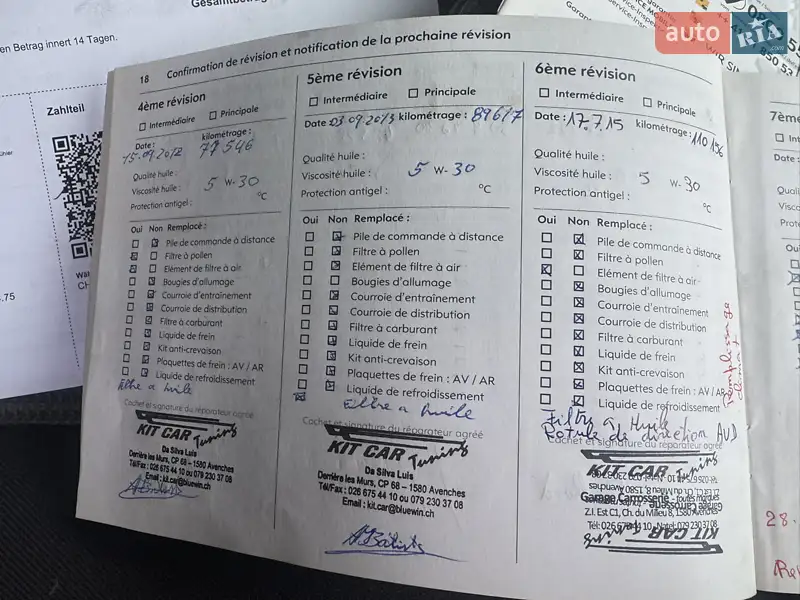 Gesamtbetrag
en Betrag innert 14 Tagen.
Zahlteil
.75
auto RIA
.com
18 Confirmation de révision et notification de la prochaine révision
4ème révision
Intermédiaire Principale
Date : kilométrage :
15.09.2012 77546
Qualité huile :
Viscosité huile : 5 W-30
Protection antigel : °C
Oui Non Remplacé :
Pile de commande à distance
Filtre à pollen
Elément de filtre à air
Bougies d'allumage
Courroie d'entraînement
Courroie de distribution
Filtre à carburant
Liquide de frein
Kit anti-crevaison
Plaquettes de frein : AV / AR
Liquide de refroidissement
Filtre a huile
Cachet et signature du réparateur agréé
KIT CAR Tuning
Da Silva Luis
Derrière les Murs, CP 68 – 1580 Avenches
Tél/Fax : 026 675 44 10 ou 079 230 37 08
Email : kit.car@bluewin.ch
5ème révision
Intermédiaire Principale
Date : 03.09.2013 kilométrage : 89617
Qualité huile :
Viscosité huile : 5 W-30
Protection antigel : °C
Oui Non Remplacé :
Pile de commande à distance
Filtre à pollen
Elément de filtre à air
Bougies d'allumage
Courroie d'entraînement
Courroie de distribution
Filtre à carburant
Liquide de frein
Kit anti-crevaison
Plaquettes de frein : AV / AR
Liquide de refroidissement
Filtre a huile
Cachet et signature du réparateur agréé
KIT CAR Tuning
Da Silva Luis
Derrière les Murs, CP 68 – 1580 Avenches
Tél/Fax : 026 675 44 10 ou 079 230 37 08
Email : kit.car@bluewin.ch
6ème révision
Intermédiaire Principale
Date : 17.7.15 kilométrage : 110 196
Qualité huile :
Viscosité huile : 5 W-30
Protection antigel : °C
Oui Non Remplacé :
Pile de commande à distance
Filtre à pollen
Elément de filtre à air
Bougies d'allumage
Courroie d'entraînement
Courroie de distribution
Filtre à carburant
Liquide de frein
Kit anti-crevaison
Plaquettes de frein : AV / AR
Liquide de refroidissement
Filtre a Huile
Rotule de direction AVD
Cachet et signature du réparateur agréé
KIT CAR Tuning
Garage Carrosserie
Z.I. Est C1, Ch. du Milieu 8, 1580 Avenches
Tél: 026 675 44 10
7ème
Date :
28.